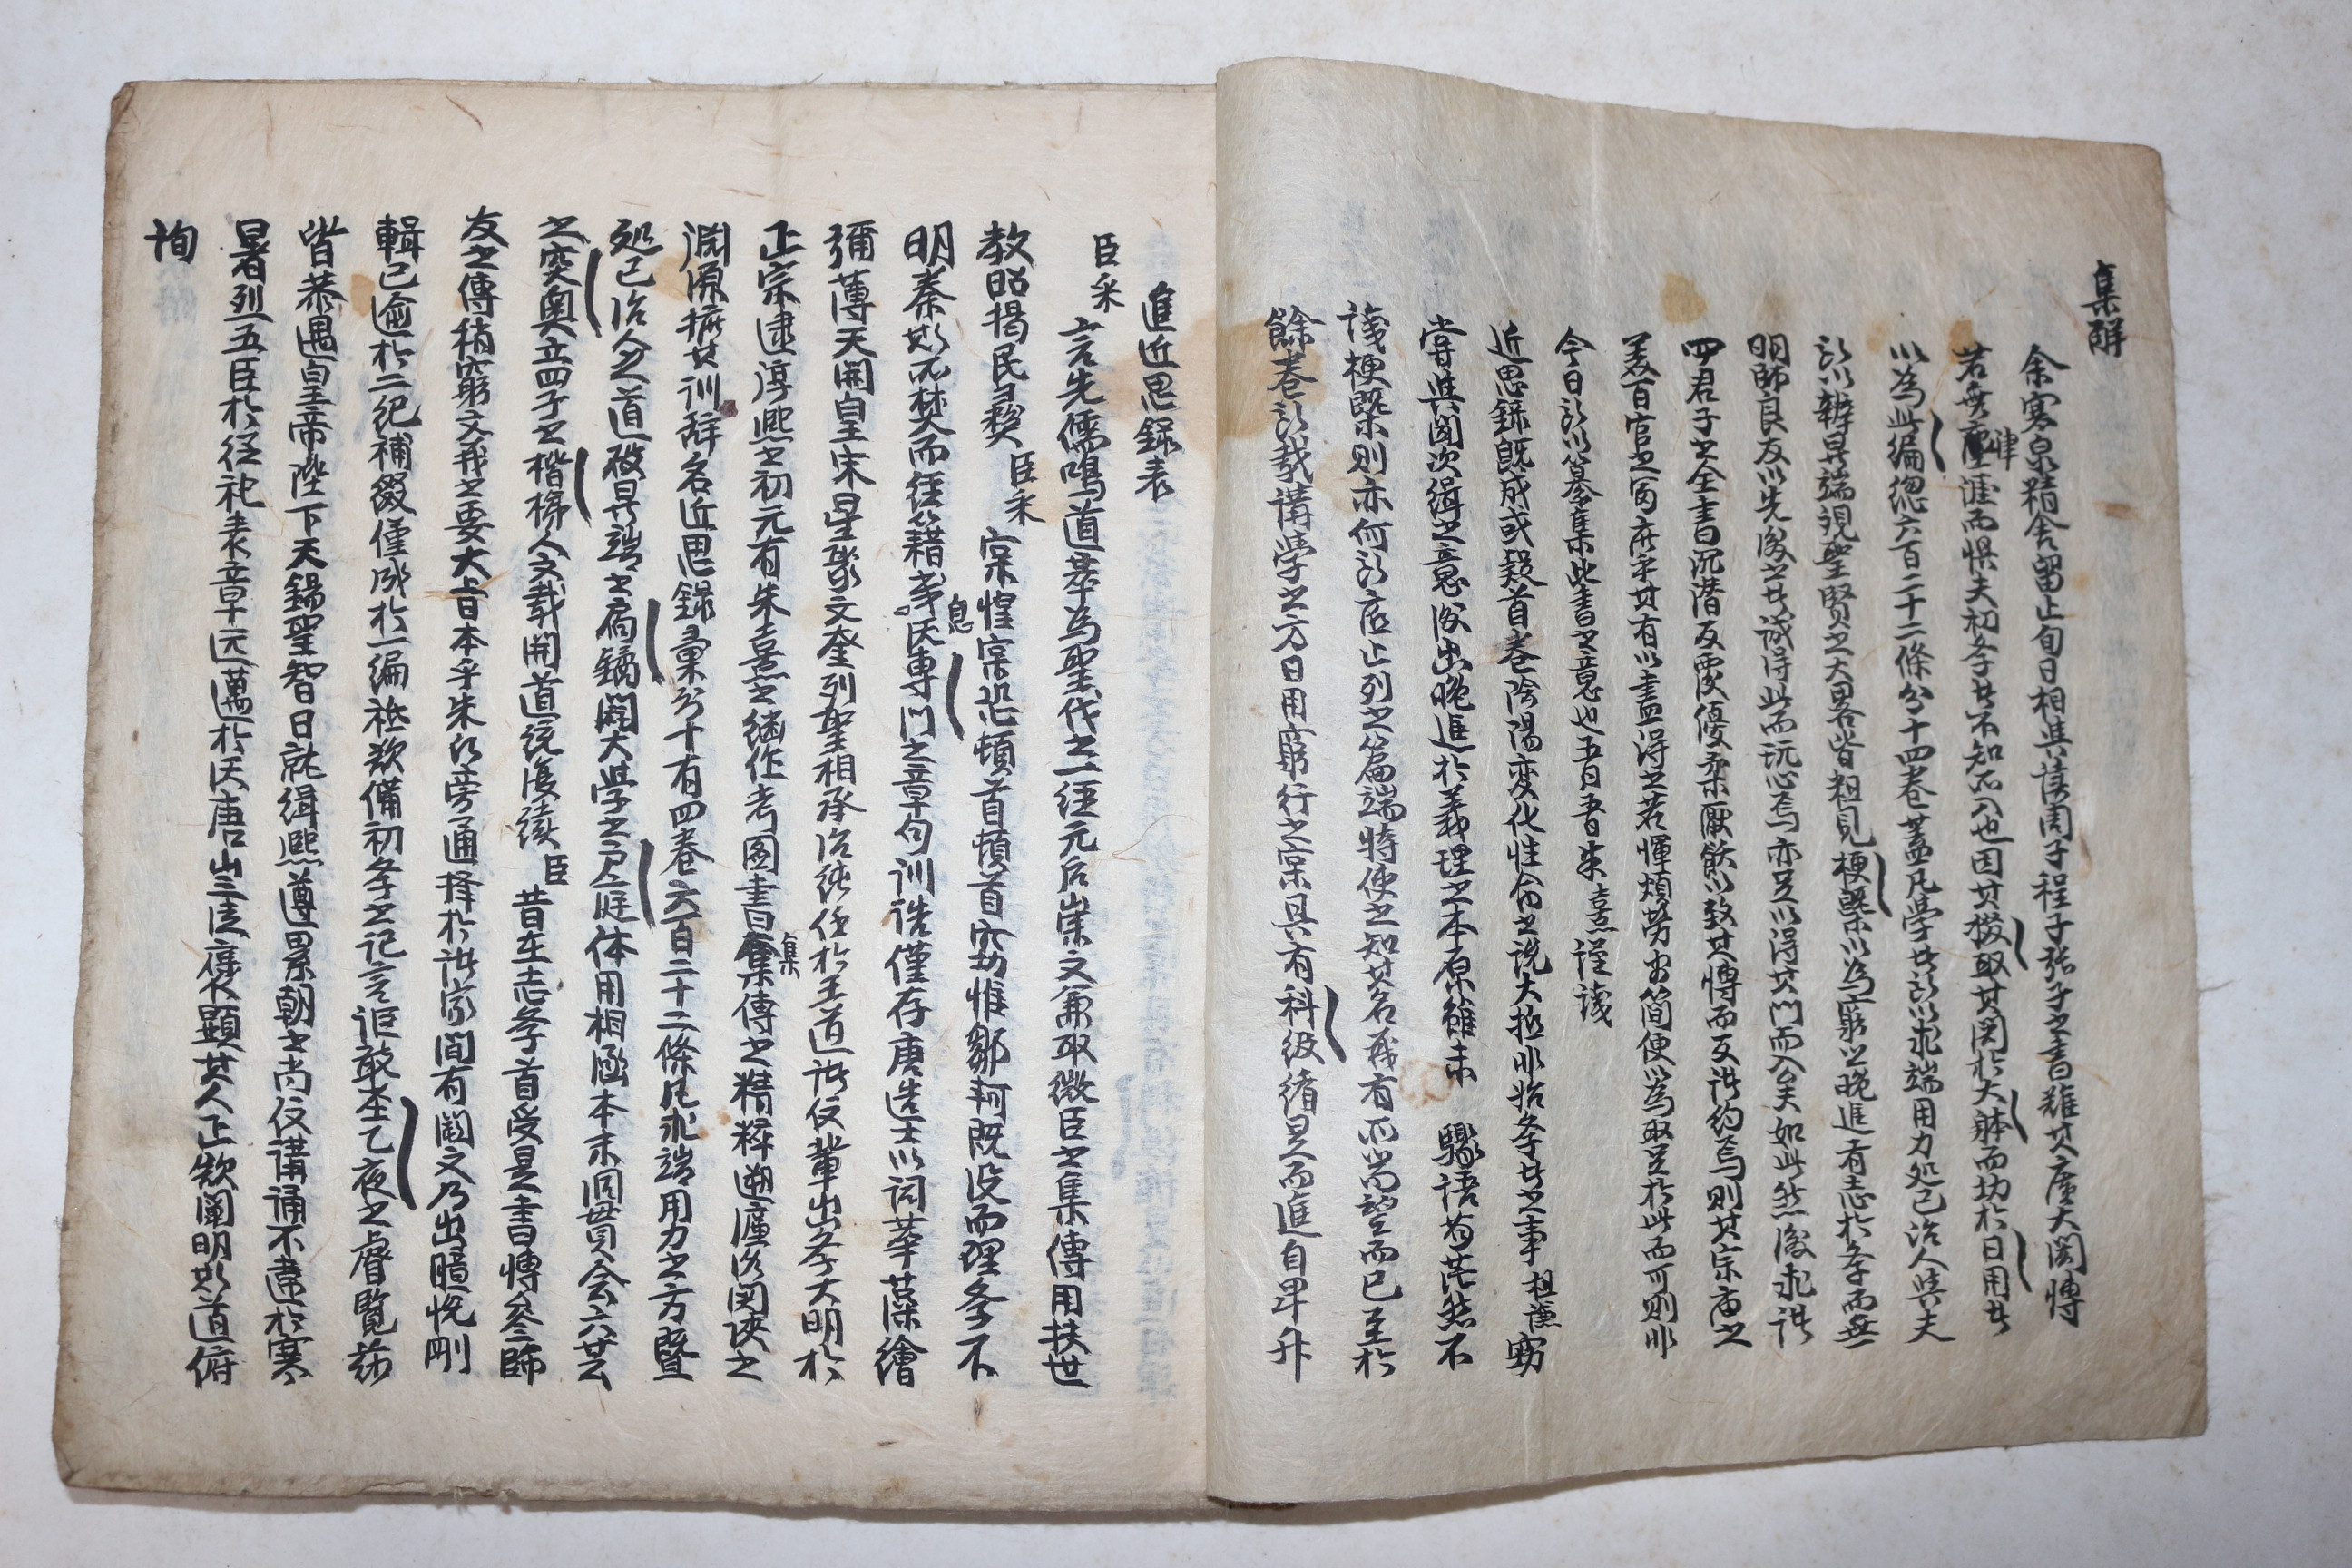 集解
余寒泉精舍留止旬日相與讀周子程子張子之書雖其廣大閎博
若無津涯而懼夫初学者不知所入也因其掇取其関於大体而切於日用者
以為此編總六百二十二條分十四卷蓋凡學者所以求端用力処己治人與夫
所以辨异端視聖賢之大畧皆粗見梗槩以為窮公晚進有志於学而無
明師良友以先後之者誠得此而玩心焉亦足以得其門而入矣如此然後求諸
四君子之全書沉潜反覆優柔厭飫以致其博而反諸約焉則其宗庙之
美百官之富庶乎其有以盡得之若憚煩勞安簡便以為取足於此而可則非
今日所以纂集此書之意也五日吾朱熹謹識
近思錄既成或疑首卷陰陽変化性命之說大抵非始学者之事祖謙窃
甞與聞次緝之意後出晚進於義理之本原雖未 驟語苟茫然不
識梗槩則亦何所底止列之篇端特使之知其名義有所尚望而已至於
餘卷所載講學之方日用躬行之实具有科級循是而進自卑升
進近思録表
臣采 言先儒鳴道萃為聖代之一經元后崇文兼取微臣之集傳用扶世
教昭揭民彛臣采 寔惶寔恐頓首頓首窃惟鄒軻既没而理学不
明秦斯所焚而經籍幾息漢專門之章句訓誥僅存唐造士以詞華藻繪
彌薄天開皇宋星聚文奎列聖相承治純任於王道諸仪輩出学大明於
正宗逮淳熙之初元有朱熹之継作考圖書集傳之精粹遡濂洛関陜之
淵源摭其訓辞名近思録彙分十有四卷六百二十二條凡求端用力之方曁
処己治人之道破异端之扃鐍闢大学之戶庭体用相涵本末洞貫会六芸
之突奥立四子之楷梯人文載開道統復續臣 昔在志学首受是書博參師
友之傳稍窮文義之要大旨本乎朱氏旁通擇於諸家間有闕文乃出臆說刪
輯已逾於二紀補綴僅成於一編祗欲備初学之記言詎敢塵乙夜之睿覽茲
皆恭遇皇帝陛下天錫聖智日就緝熙遵累朝之尚仪講誦不違於寒
暑列五臣於從祀表章远邁於漢唐三顕其人正欲闡明斯道俯
詢